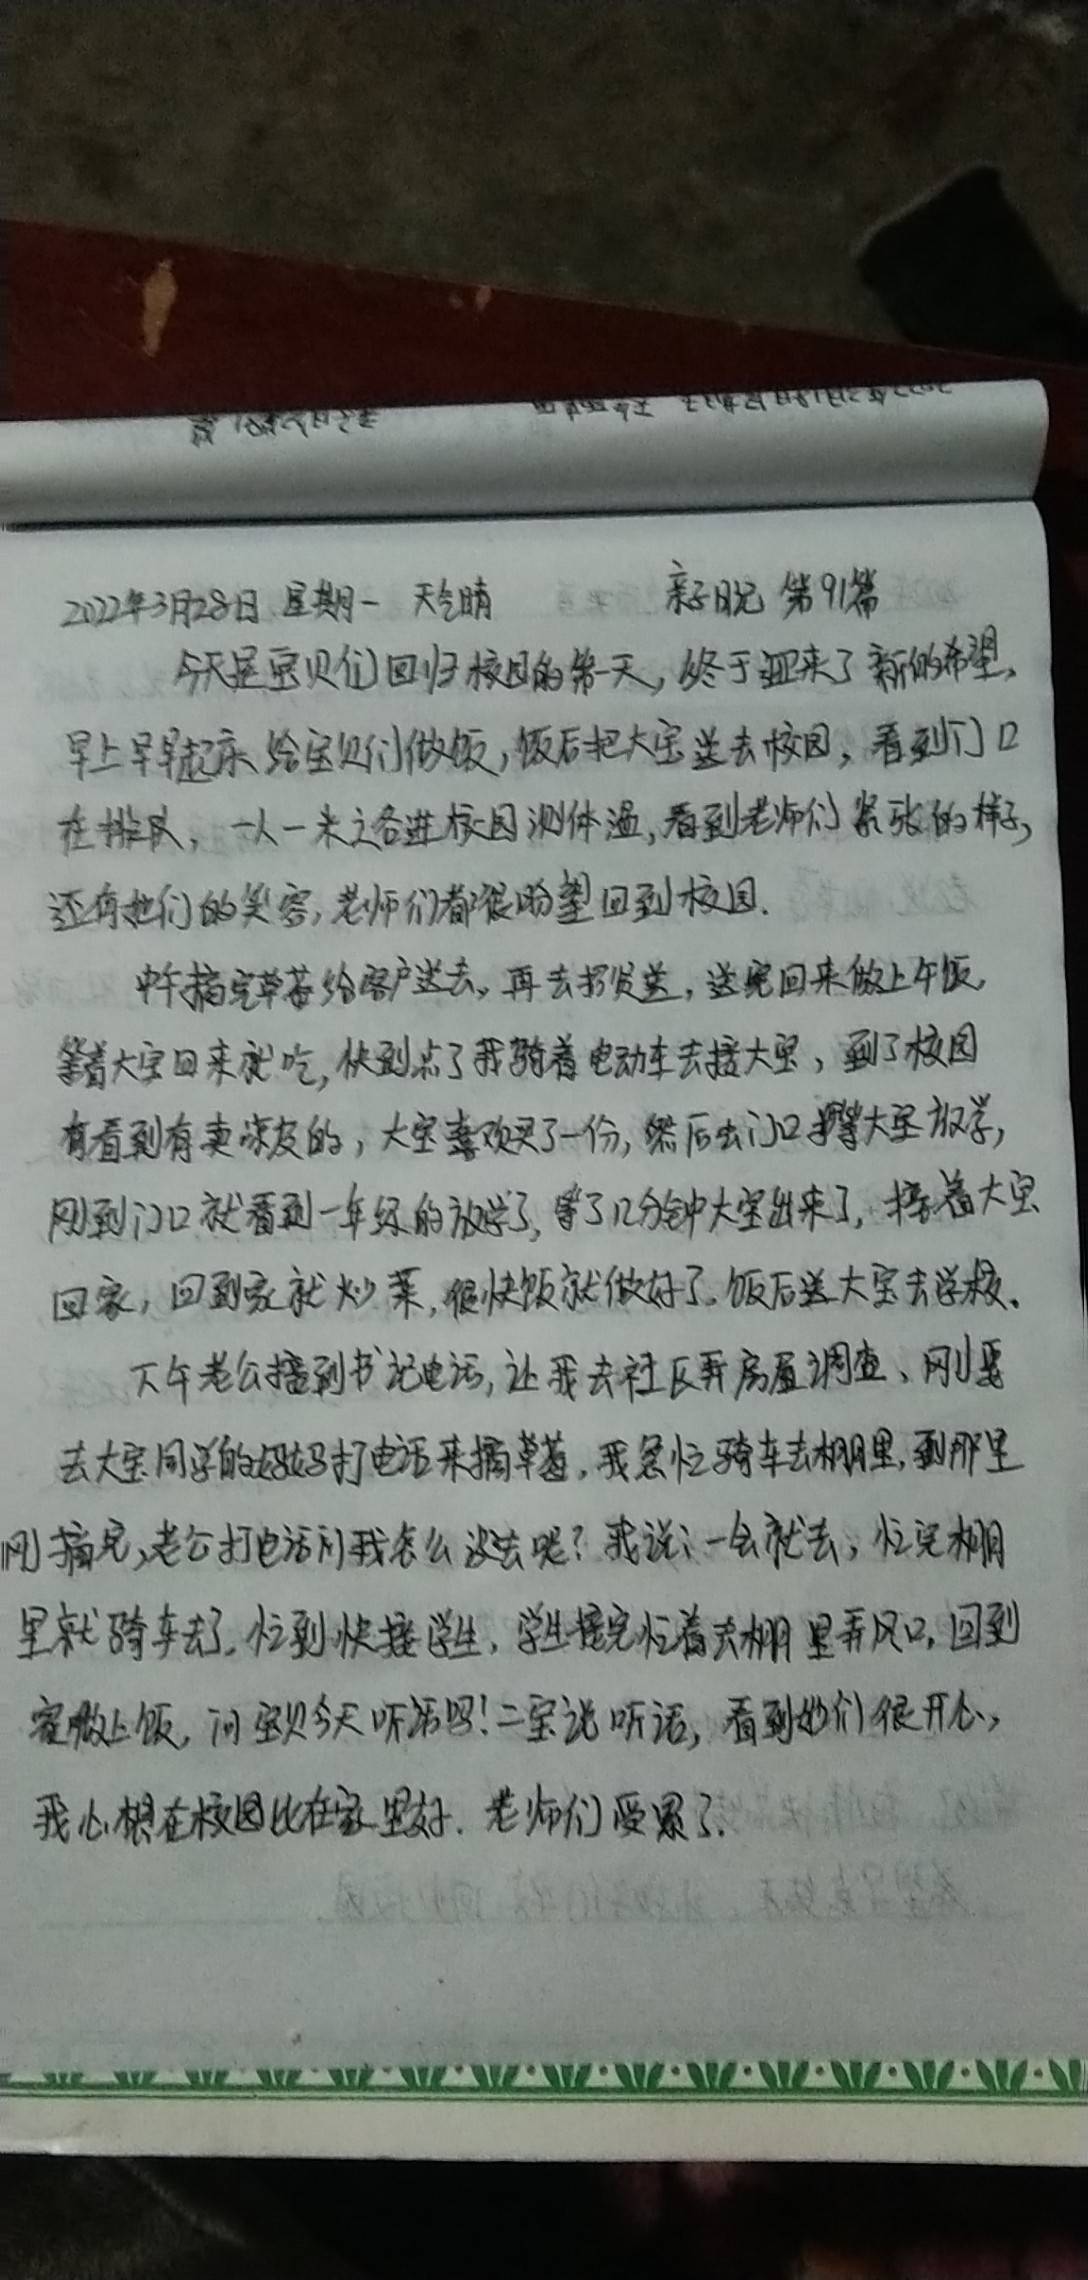 2022年3月28日 星期一 天气晴 亲子日记 第91篇
今天是宝贝们回归校园的第一天，终于迎来了新的希望。
早上早早起床给宝贝们做饭，饭后把大宝送去校园，看到门口
在排队，一人一米之各进校园测体温，看到老师们紧张的样子，
还有她们的笑容，老师们都很盼望回到校园.
中午摘完草莓给客户送去，再去发送，送完回来做上午饭，
等着大宝回来就吃，快到点了我骑着电动车去接大宝，到了校园
有看到有卖凉皮的，大宝喜欢买了一份，然后去门口等大宝放学，
刚到门口就看到一年级的放学了，等了12分钟大宝出来了，接着大宝
回家，回到家就炒菜，很快饭就做好了。饭后送大宝去学校。
下午老公接到书记电话，让我去社区弄房屋调查、刚要
去大宝同学的妈妈打电话来摘草莓，我急忙骑车去棚里，到那里
刚摘完，老公打电话问我怎么没去呢？我说：一会就去，忙完棚
里就骑车去了。忙到快接学生，学生接完忙着去棚里弄风口，回到
家做上饭，问宝贝今天听话吗！二宝说听话，看到她们很开心，
我心想在校园比在家里好．老师们受累了．